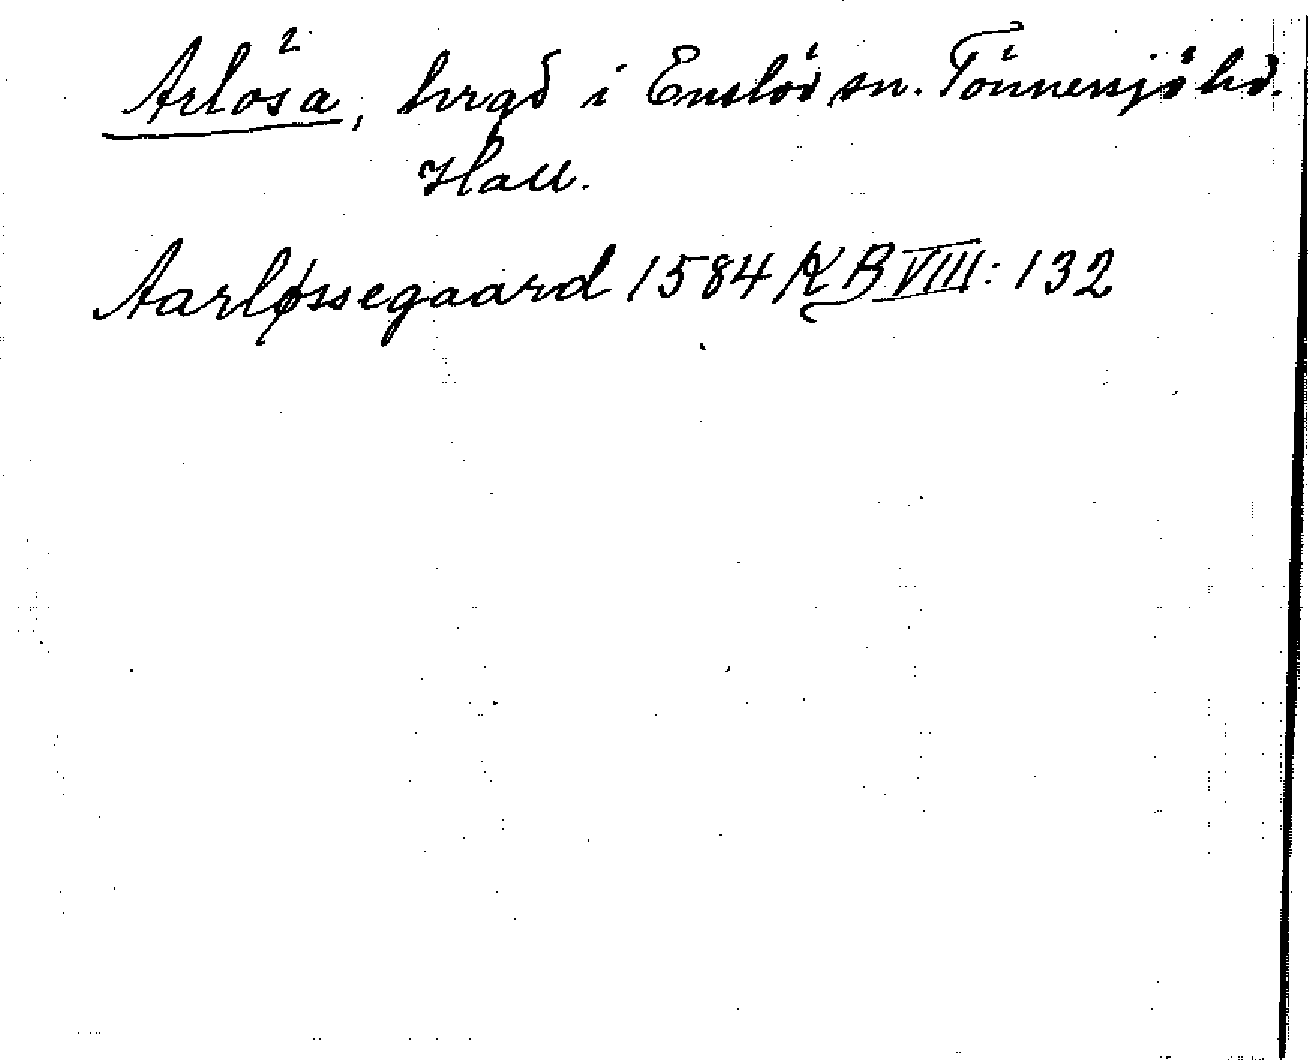 Arlösa², hrgd i Enslöv sn. Tönnersjö hd.
Hall.
Aarløssegaard 1584 KB VIII: 132